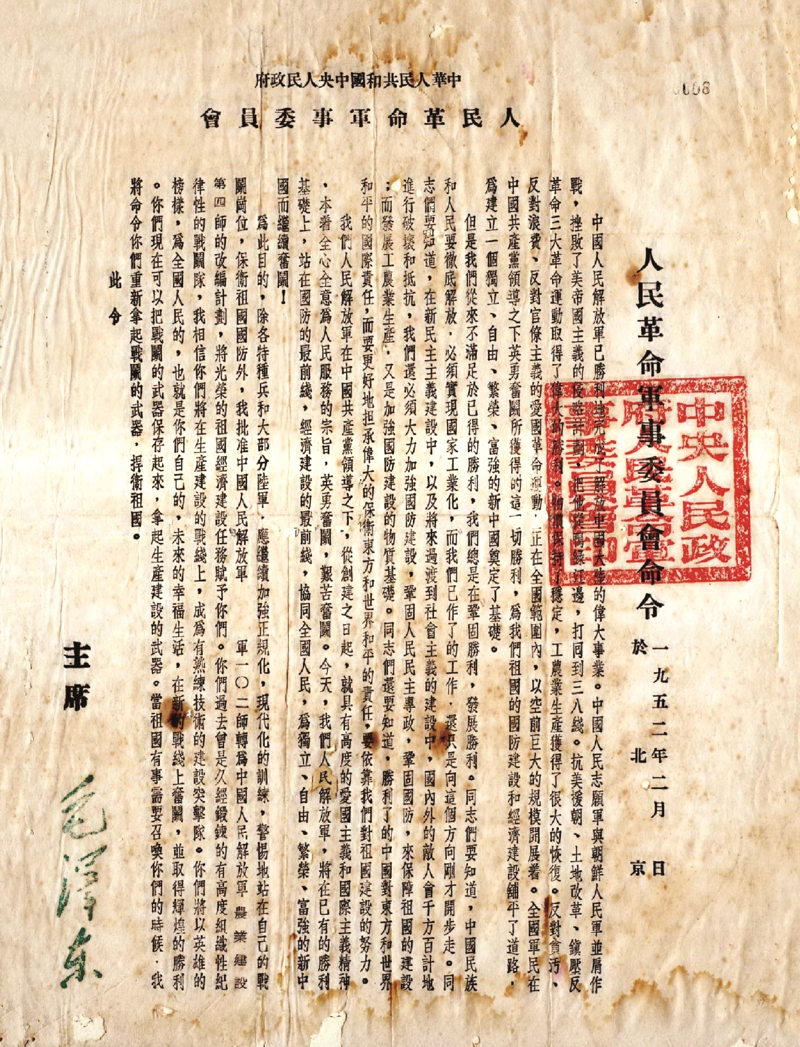 中華人民共和國中央人民政府
人民革命軍事委員會
人民革命軍事委員會命令
一九五二年二月 日
於北京
中央人民政
府人民革命
中國人民解放軍已勝利地完成了解放中國大陸的偉大事業。中國人民志願軍與朝鮮人民軍並肩作
戰，挫敗了美帝國主義的侵略計劃，把他從鴨綠江邊，打回到三八綫。抗美援朝、土地改革、鎭壓反
革命三大革命運動取得了偉大的勝利。物價保持了穩定，工農業生產獲得了很大的恢復。反對貪汚、
反對浪費、反對官僚主義的愛國革命運動，正在全國範圍內，以空前巨大的規模開展着。全國軍民在
中國共產黨領導之下英勇奮鬭所獲得的這一切勝利，爲我們祖國的國防建設和經濟建設鋪平了道路，
爲建立一個獨立、自由、繁榮、富強的新中國奠定了基礎。
但是我們從來不滿足於已得的勝利，我們總是在鞏固勝利，發展勝利。同志們要知道，中國民族
和人民要徹底解放，必須實現國家工業化，而我們已作了的工作，還只是向這個方向剛才開步走。同
志們要知道，在新民主主義建設中，以及將來過渡到社會主義的建設中，國內外的敵人會千方百計地
進行破壞和抵抗，我們還必須大力加強國防建設，鞏固人民民主專政，鞏固國防，來保障祖國的建設
；而發展工農業生產，又是加強國防建設的物質基礎。同志們還要知道，勝利了的中國對東方和世界
和平的國際責任，而要更好地担承偉大的保衛東方和世界和平的責任，要依靠我們對祖國建設的努力。
我們人民解放軍在中國共產黨領導之下，從創建之日起，就具有高度的愛國主義和國際主義精神
，本着全心全意爲人民服務的宗旨，英勇奮鬭，艱苦奮鬭。今天，我們人民解放軍，將在已有的勝利
基礎上，站在國防的最前綫，經濟建設的最前綫，協同全國人民，爲獨立、自由、繁榮、富強的新中
國而繼續奮鬭！
爲此目的，除各特種兵和大部分陸軍，應繼續加強正規化，現代化的訓練，警惕地站在自己的戰
鬭崗位，保衛祖國國防外，我批准中國人民解放軍 軍一〇二師轉爲中國人民解放軍 農業建設
第四師的改編計劃，將光榮的祖國經濟建設任務賦予你們。你們過去曾是久經鍛鍊的有高度組織性紀
律性的戰鬭隊，我相信你們將在生產建設的戰綫上，成爲有熟練技術的建設突擊隊。你們將以英雄的
榜樣，爲全國人民的，也就是你們自己的，未來的幸福生活，在新的戰綫上奮鬭，並取得輝煌的勝利
。你們現在可以把戰鬭的武器保存起來，拿起生產建設的武器。當祖國有事需要召喚你們的時候，我
將命令你們重新拿起戰鬭的武器，捍衛祖國。
此令
主席
毛澤东